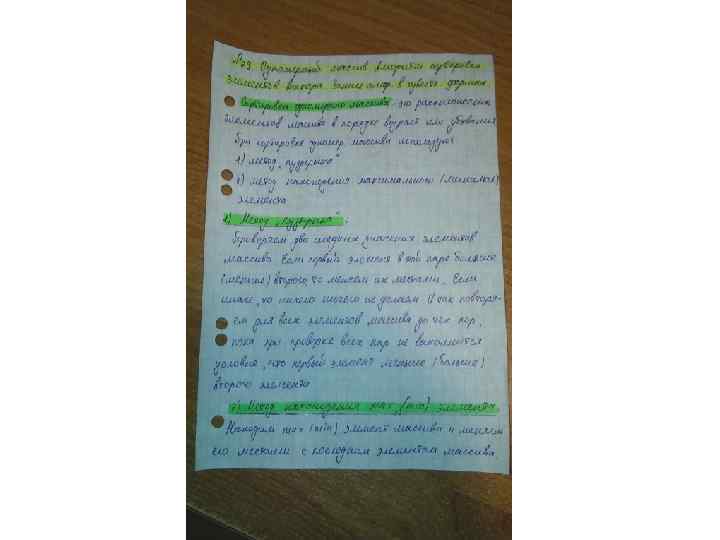 №29 Одномерный массив сортировка
элементов
Сортировка одномерного массива это расположение
элементов массива в порядке возраст или убывания
При сортировке одномер. массива используют
1) метод "пузырька"
2) метод нахождения максимального (минимал)
элемента
1) Метод "пузырька".
Проверяем два соседних значения элементов
массива Если первый элемент в той паре больше
(меньше) второго, то меняем их местами. Если
иначе, то ничего не делаем И так повторя-
ем для всех элементов массива до тех пор,
пока при проверке всех пар не выполнится
условие, что первый элемент меньше (больше)
второго элемента
2) Метод нахождения max (min) элемента
Находим max (min) элемент массива и меняем
его местами с последним элементом массива